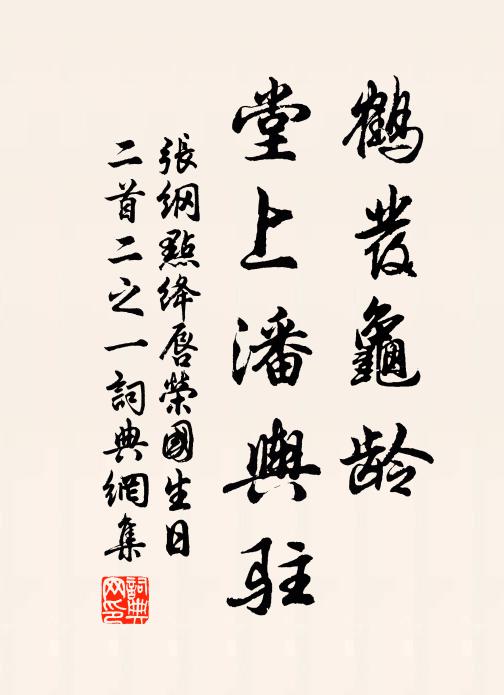 鶴發龜齡
堂上潘輿駐
張綱點絳唇榮國生日
二首二之一詞典網集
詞典网印